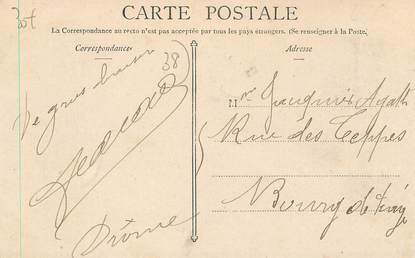 CARTE POSTALE
La Correspondance au recto n'est pas acceptée par tous les pays étrangers. (Se renseigner à la Poste.)
Correspondance
Adresse
38
De gros baisers
M
Rue des Teppes
Bourg de Péage
Drôme